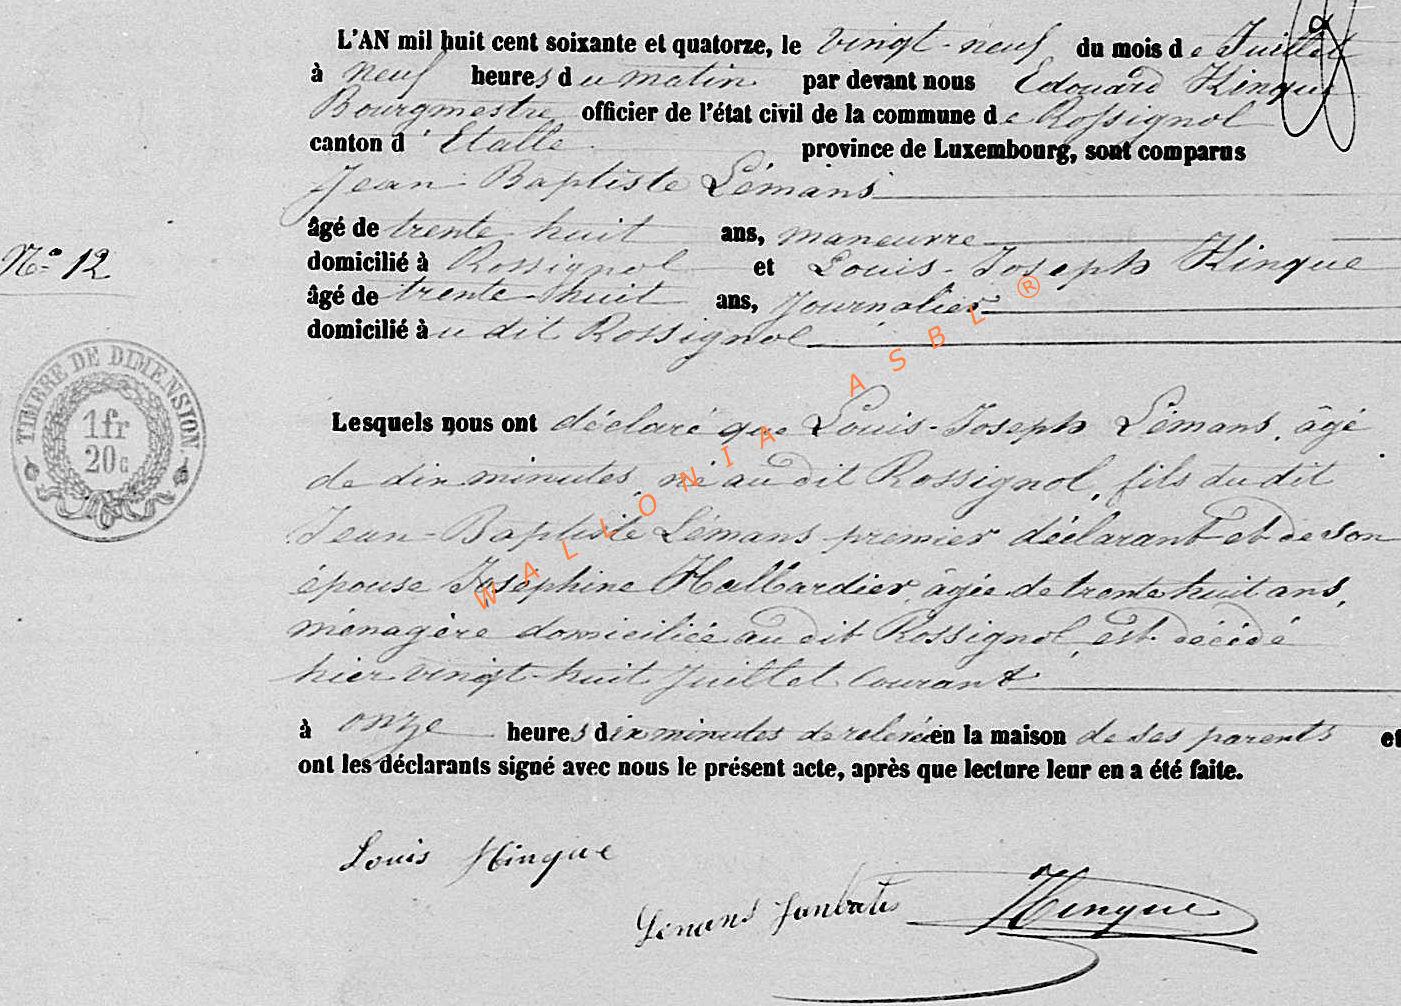 L'AN mil huit cent soixante et quatorze, le vingt-neuf du mois de Juillet
à neuf heures du matin par devant nous Edouard Hinque
Bourgmestre officier de l'état civil de la commune de Rossignol
canton d'Etalle province de Luxembourg, sont comparus
Jean-Baptiste Lémans
âgé de trente huit ans, maneuvre
N° 12
domicilié à Rossignol et Louis-Joseph Hinque
âgé de trente-huit ans, Journalier
domicilié àu dit Rossignol
TIMBRE DE DIMENSION
1 fr
20 c
Lesquels nous ont déclaré que Louis-Joseph Lémans, âgé
de dix minutes, né au dit Rossignol, fils du dit
Jean-Baptiste Lémans premier déclarant et de son
épouse Joséphine Hallbardier, âgée de trente huit ans,
ménagère domiciliée au dit Rossignol, est décédé
hier vingt-huit Juillet Courant
à onze heures dix minutes de relevée en la maison de ses parents et
ont les déclarants signé avec nous le présent acte, après que lecture leur en a été faite.
Louis Hinque
Lemans Janbatis Hinque
WALLONIA ASBL ®